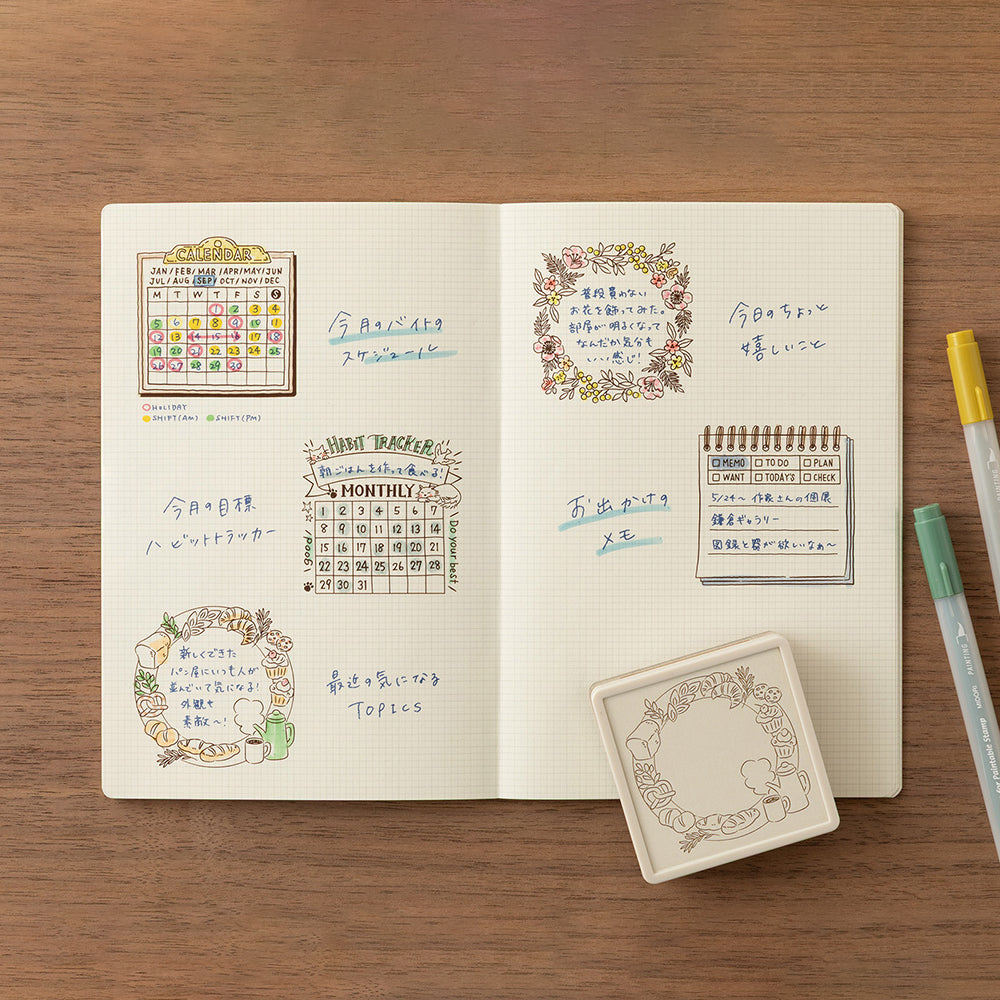 CALENDAR
JAN/FEB/MAR/APR/MAY/JUN
JUL/AUG/SEP/OCT/NOV/DEC
M T W T F S S
1 2 3 4
5 6 7 8 9 10 11
12 13 14 15 16 17 18
19 20 21 22 23 24 25
26 27 28 29 30
HOLIDAY
SHIFT(AM) SHIFT(PM)
今月のバイトの
スケジュール
HABIT TRACKER
朝ごはんを作って食べる!
MONTHLY
1 2 3 4 5 6 7
8 9 10 11 12 13 14
15 16 17 18 19 20 21
22 23 24 25 26 27 28
29 30 31
Good!
Do your best!
今月の目標
ハビットトラッカー
新しくできた
パン屋にいつも人が
並んでいて気になる!
外観も
素敵〜!
最近の気になる
TOPICS
普段買わない
お花を飾ってみた。
部屋が明るくなって
なんだか気分も
いい感じ!
今日のちょっと
嬉しいこと
お出かけの
メモ
MEMO TO DO PLAN
WANT TODAY'S CHECK
5/24〜 作家さんの個展
鎌倉ギャラリー
図録と
が欲しいなぁ〜
for Paintable Stamp MIDORI PAINTING